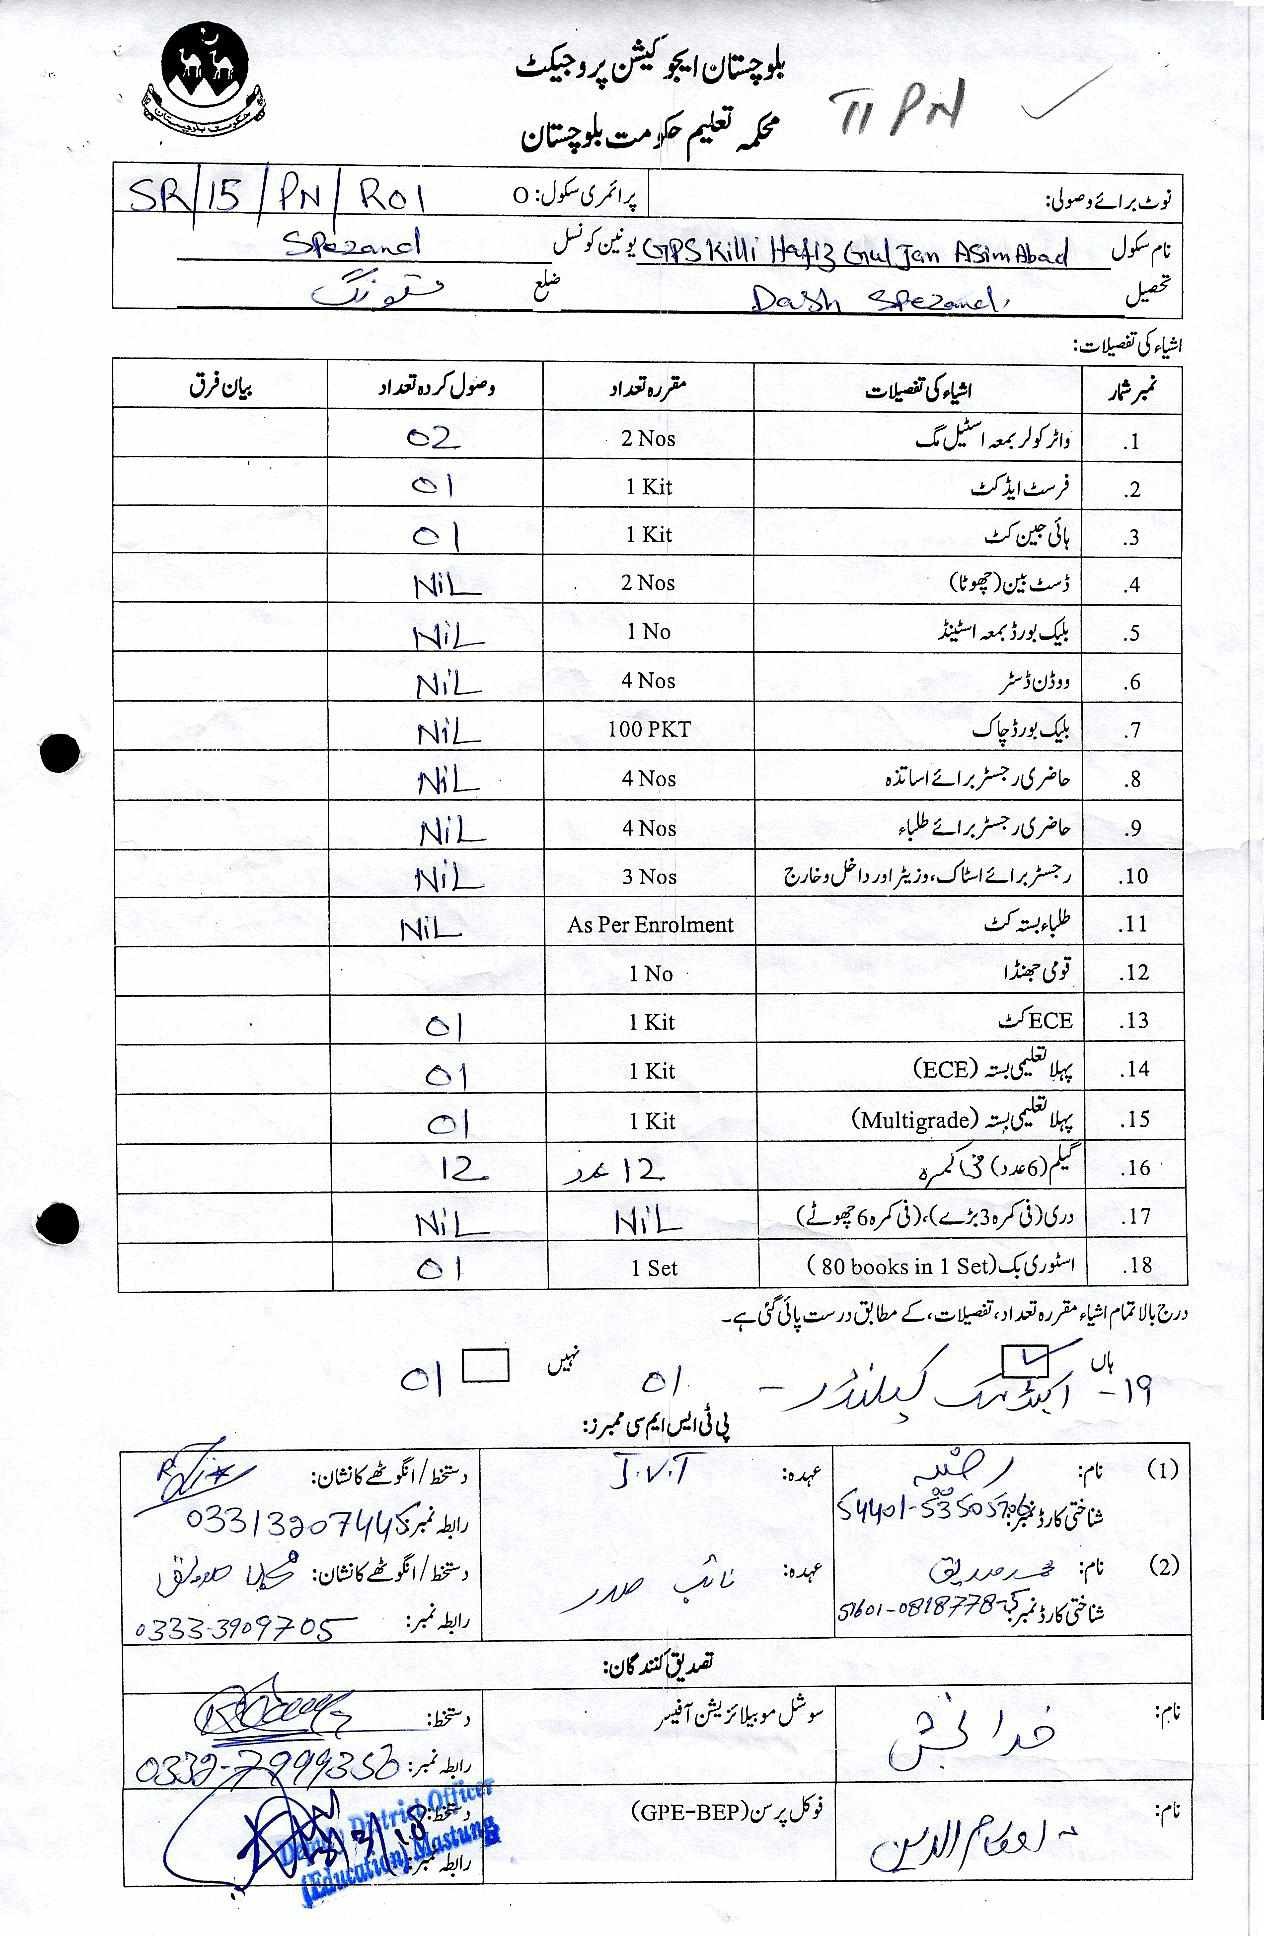 بلوچستان ایجوکیشن پروجیکٹ
محکمہ تعلیم حکومت بلوچستان
TI PN
نوٹ برائے وصولی: پرائمری سکول: O SR/15/PN/R01
نام سکول GPS Killi Hafiz Gul Jan Asim Abad یونین کونسل Spezand
تحصیل Dash Spezand ضلع مستونگ
اشیاء کی تفصیلات:
نمبر شمار اشیاء کی تفصیلات مقررہ تعداد وصول کردہ تعداد بیان فرق
1. واٹر کولر بمعہ اسٹیل مگ 2 Nos 02
2. فرسٹ ایڈ کٹ 1 Kit 01
3. ہائی جین کٹ 1 Kit 01
4. ڈسٹ بین (چھوٹا) 2 Nos NiL
5. بلیک بورڈ بمعہ اسٹینڈ 1 No NiL
6. ووڈن ڈسٹر 4 Nos NiL
7. بلیک بورڈ چاک 100 PKT NiL
8. حاضری رجسٹر برائے اساتذہ 4 Nos NiL
9. حاضری رجسٹر برائے طلباء 4 Nos NiL
10. رجسٹر برائے اسٹاک، وزیٹر اور داخل و خارج 3 Nos NiL
11. طلباء بستہ کٹ As Per Enrolment NiL
12. قومی جھنڈا 1 No
13. ECE کٹ 1 Kit 01
14. پہلا تعلیمی بستہ (ECE) 1 Kit 01
15. پہلا تعلیمی بستہ (Multigrade) 1 Kit 01
16. گیلم (6 عدد) فی کمرہ 12 عدد 12
17. دری (فی کمرہ 3 بڑے)، (فی کمرہ 6 چھوٹے) NiL NiL
18. اسٹوری بک (80 books in 1 Set) 1 Set 01
درج بالا تمام اشیاء مقررہ تعداد، تفصیلات، کے مطابق درست پائی گئی ہے۔
ہاں نہیں
۱۹- اکیڈمک کیلنڈر - 01 01
پی ٹی ایس ایم سی ممبرز:
(1) نام: رضیہ عہدہ: J.V.T دستخط / انگوٹھے کا نشان:
شناختی کارڈ نمبر: رابطہ نمبر: 03313207445
(2) نام: محمد صدیق عہدہ: نائب صدر دستخط / انگوٹھے کا نشان:
شناختی کارڈ نمبر: 51601-0818778-5 رابطہ نمبر: 0333-3909705
تصدیق کنندگان:
نام: خدا بخش سوشل موبیلائزیشن آفیسر دستخط:
رابطہ نمبر: 0332-7999356
نام: فوکل پرسن (GPE-BEP) دستخط:
رابطہ نمبر:
Deputy District Officer
(Education) Mastung